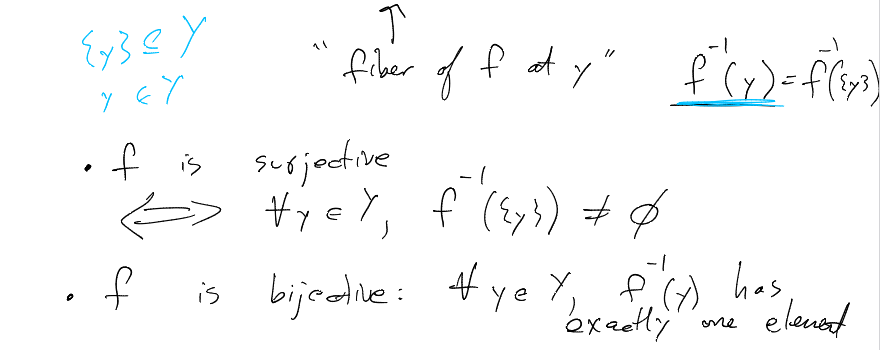 {y} ⊆ Y
y ∈ Y
↑
"fiber of f at y"
f⁻¹(y) = f⁻¹({y})
• f is surjective
⟺ ∀y ∈ Y, f⁻¹({y}) ≠ ∅
• f is bijective: ∀ y ∈ Y, f⁻¹(y) has
exactly one element